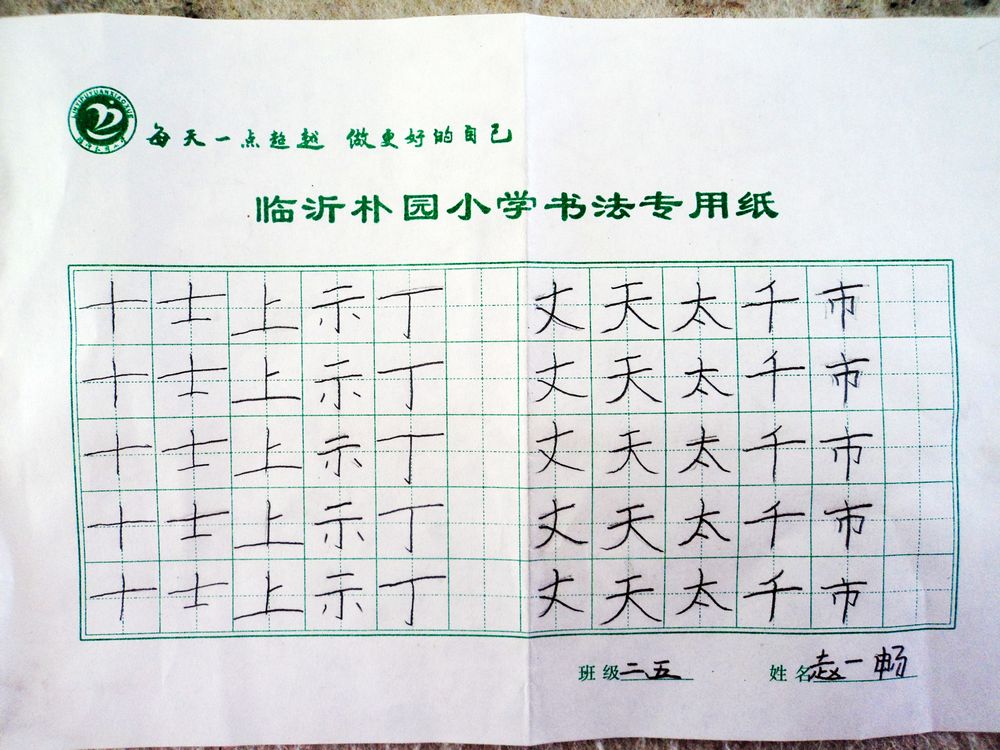 LINYIPUYUANXIAOXUE
每天一点超越 做更好的自己
临沂朴园小学书法专用纸
十士上示丁 丈天太千市
十士上示丁 丈天太千市
十士上示丁 丈天太千市
十士上示丁 丈天太千市
十士上示丁 丈天太千市
班级二五 姓名赵一畅